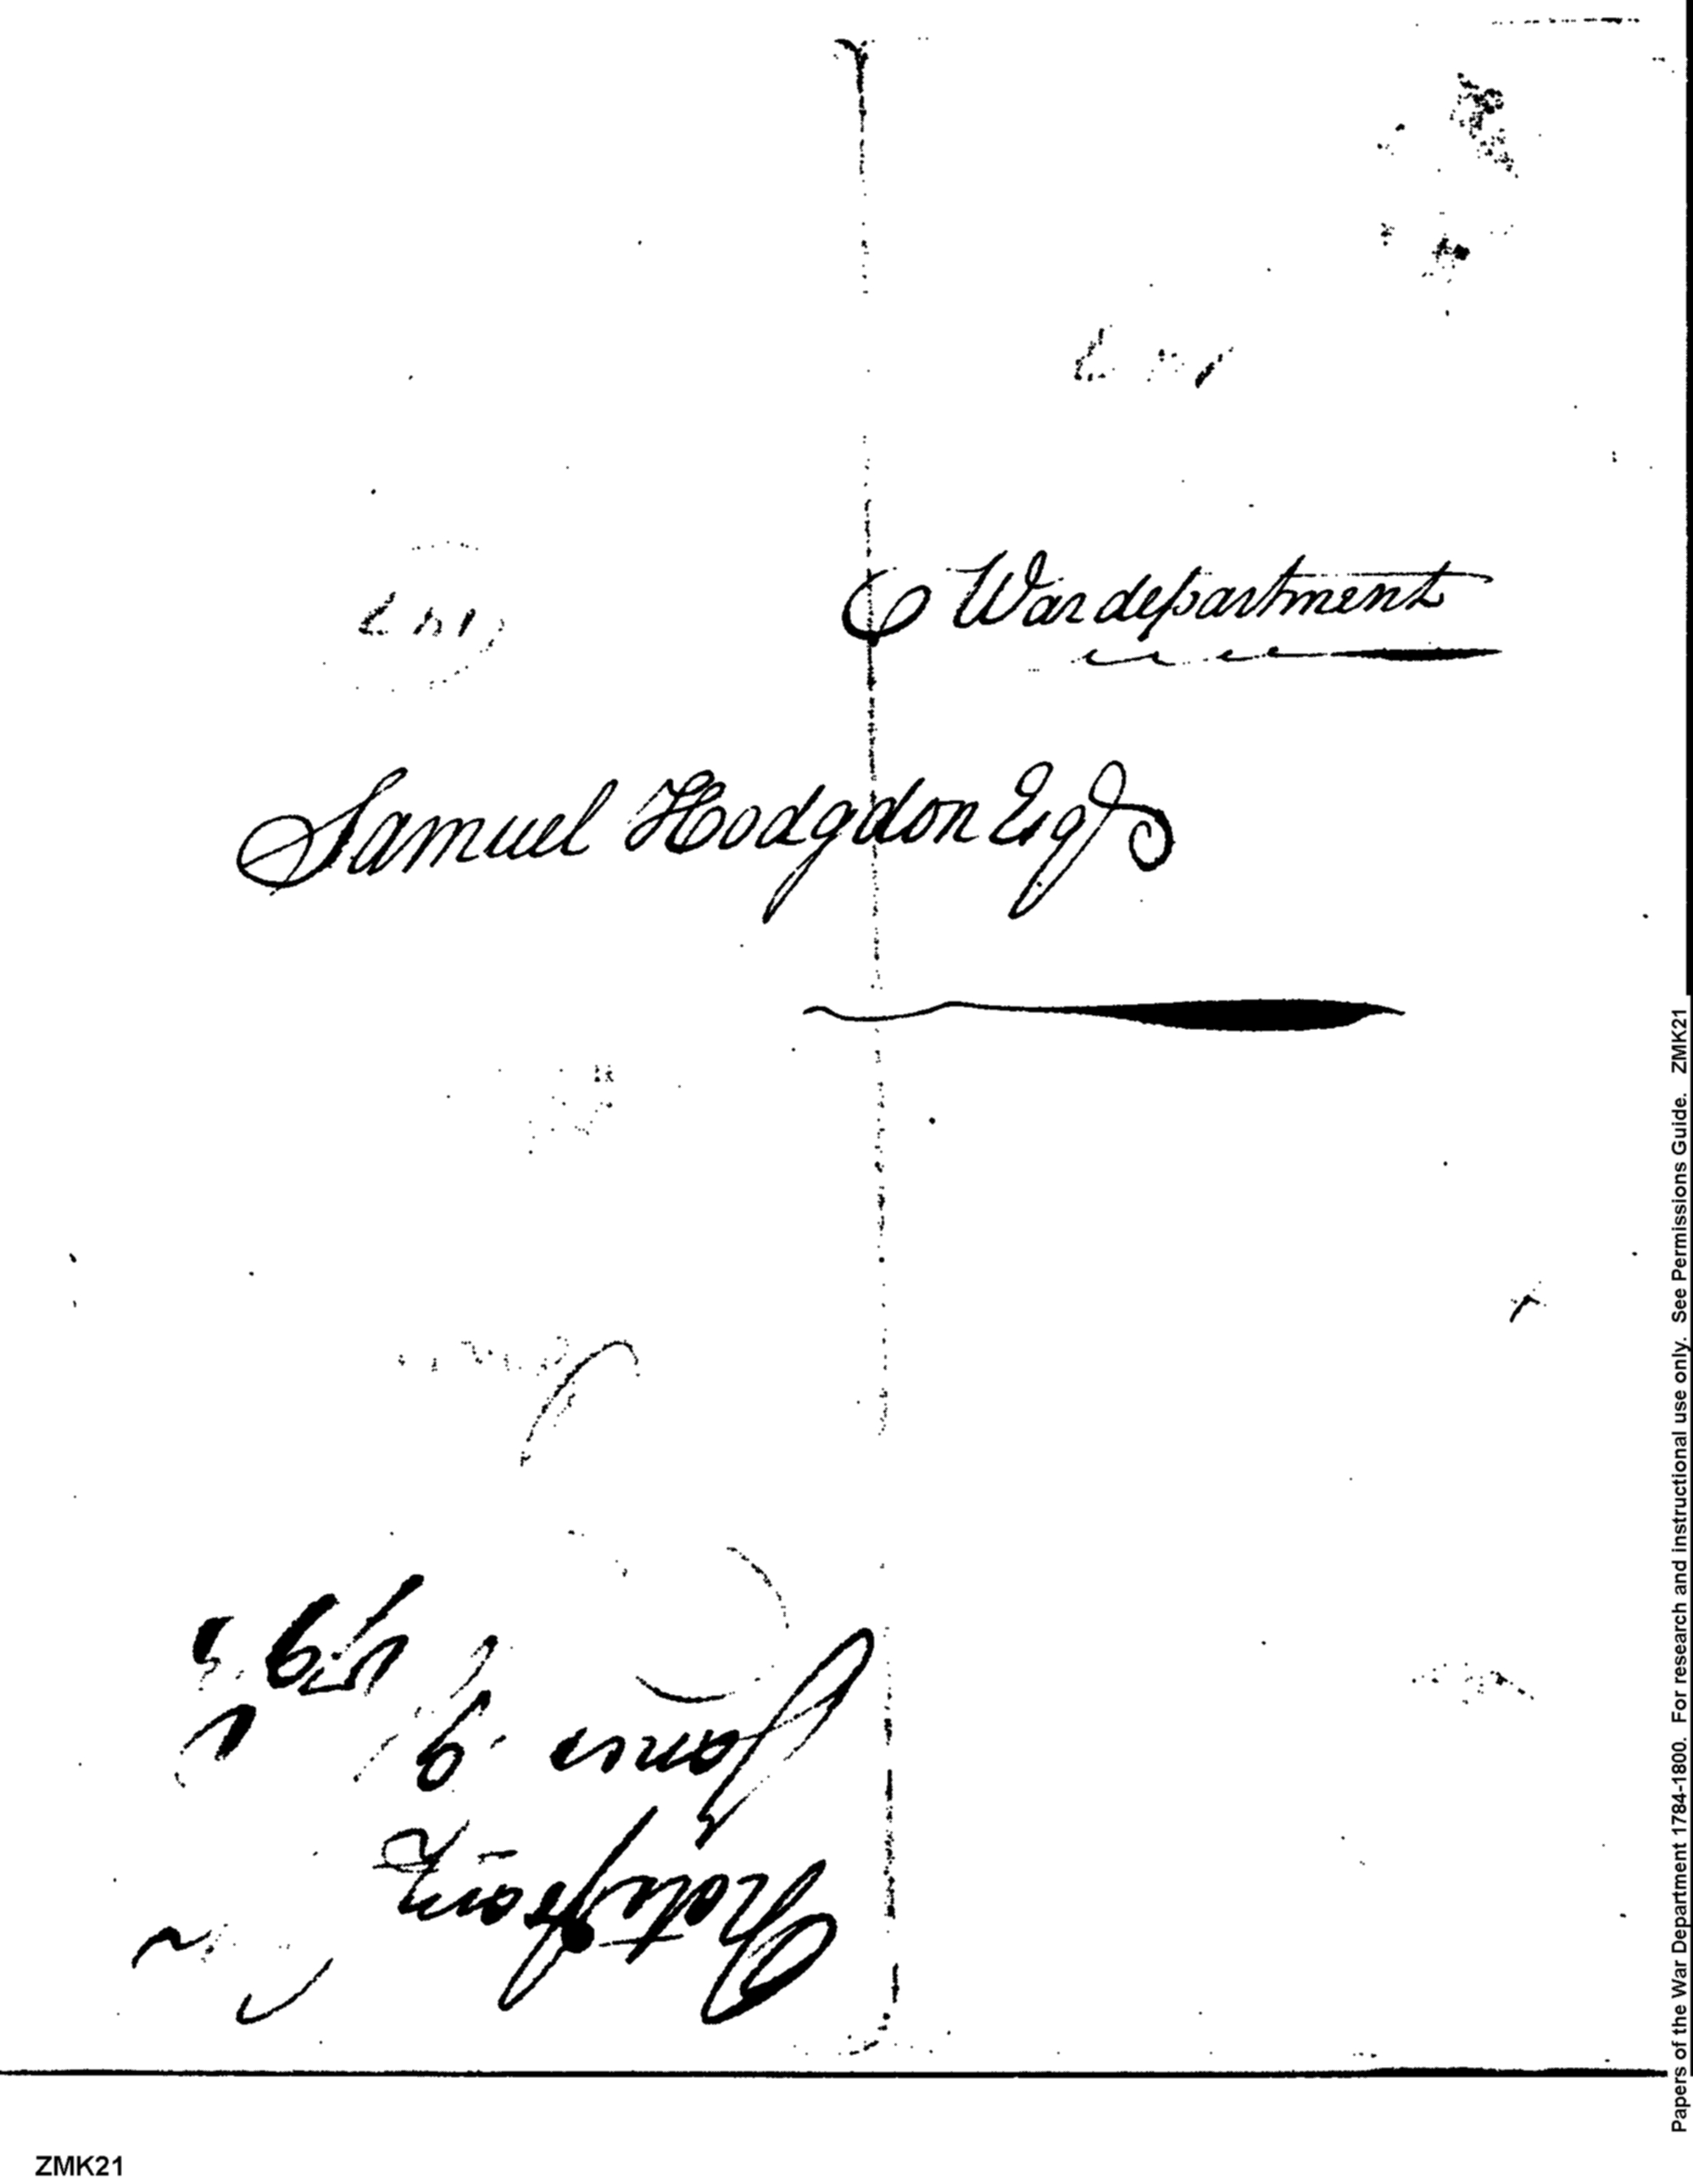 War department
Samuel Hodgdon Esqr
June 9
1792
Papers of the War Department 1784-1800. For research and instructional use only. See Permissions Guide. ZMK21
ZMK21